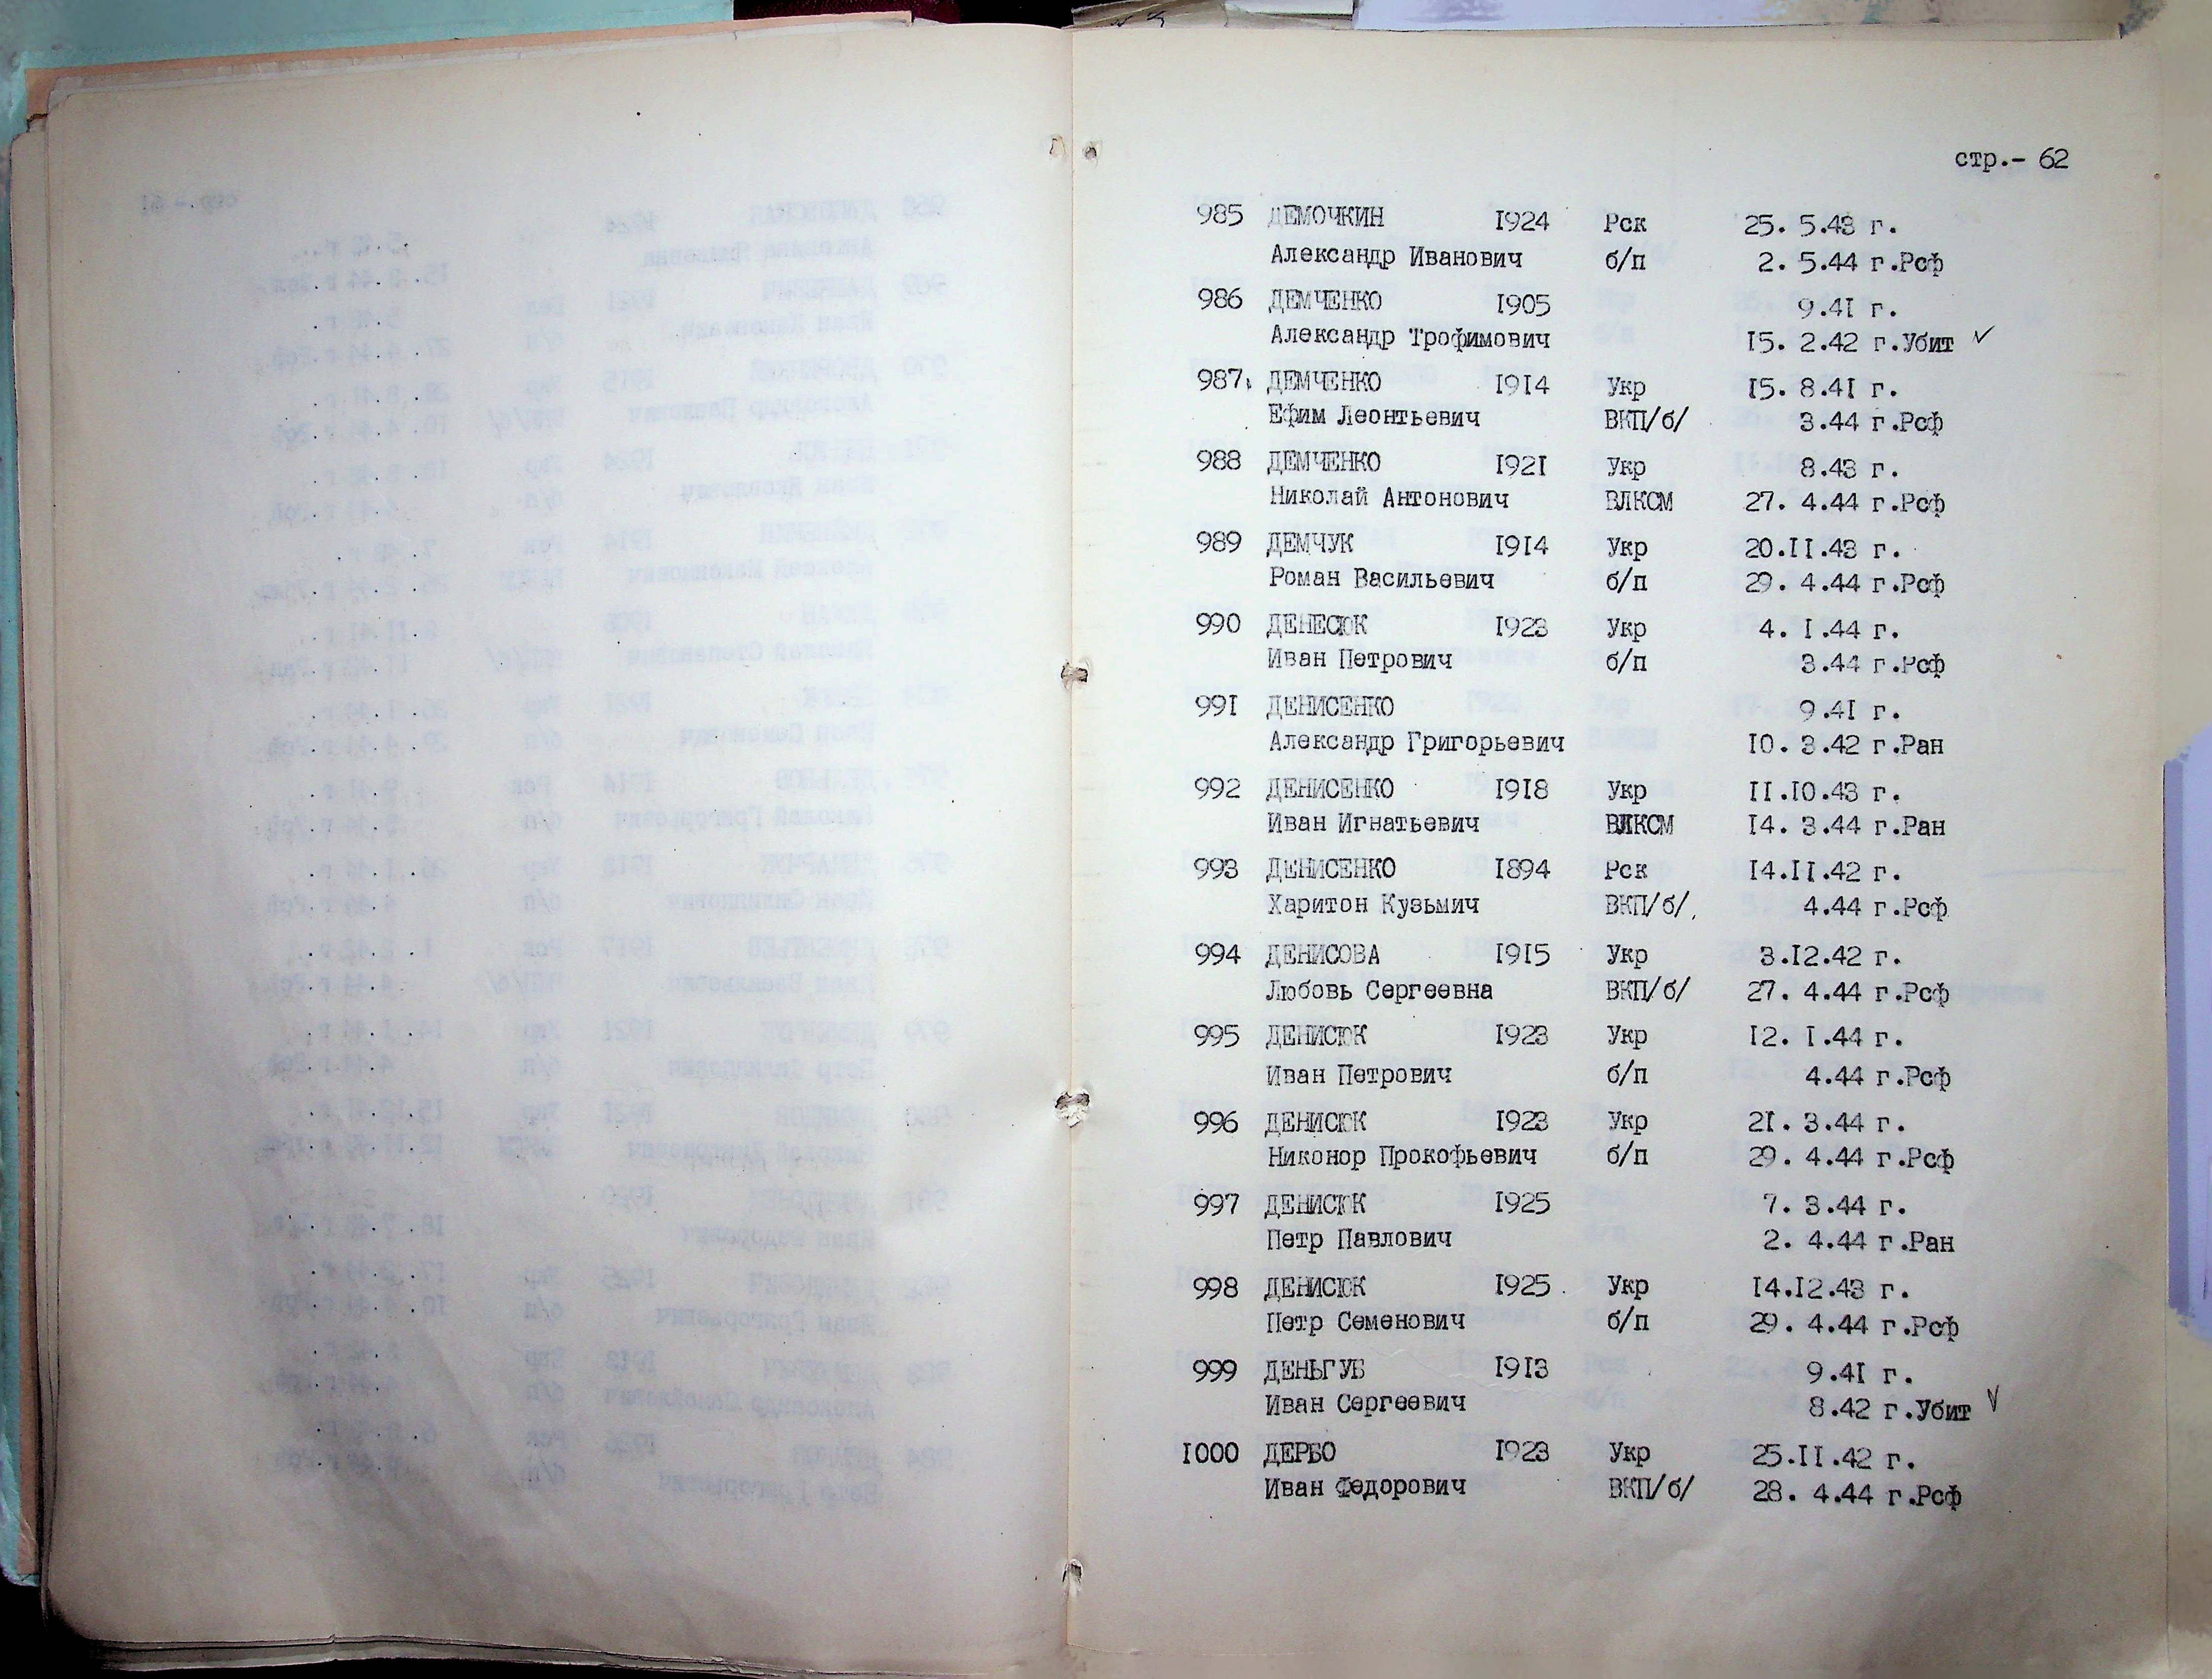 стр.- 62
985 ДЕМОЧКИН 1924 Рск 25. 5.43 г.
Александр Иванович б/п 2. 5.44 г.Рсф
986 ДЕМЧЕНКО 1905 9.41 г.
Александр Трофимович 15. 2.42 г.Убит ✓
987. ДЕМЧЕНКО 1914 Укр 15. 8.41 г.
Ефим Леонтьевич ВКП/б/ 3.44 г.Рсф
988 ДЕМЧЕНКО 1921 Укр 8.43 г.
Николай Антонович ВЛКСМ 27. 4.44 г.Рсф
989 ДЕМЧУК 1914 Укр 20.11.43 г.
Роман Васильевич б/п 29. 4.44 г.Рсф
990 ДЕНЕСЮК 1923 Укр 4. 1.44 г.
Иван Петрович б/п 3.44 г.Рсф
991 ДЕНИСЕНКО 9.41 г.
Александр Григорьевич 10. 3.42 г.Ран
992 ДЕНИСЕНКО 1918 Укр 11.10.43 г.
Иван Игнатьевич ВЛКСМ 14. 3.44 г.Ран
993 ДЕНИСЕНКО 1894 Рск 14.11.42 г.
Харитон Кузьмич ВКП/б/ 4.44 г.Рсф
994 ДЕНИСОВА 1915 Укр 3.12.42 г.
Любовь Сергеевна ВКП/б/ 27. 4.44 г.Рсф
995 ДЕНИСЮК 1923 Укр 12. 1.44 г.
Иван Петрович б/п 4.44 г.Рсф
996 ДЕНИСЮК 1923 Укр 21. 3.44 г.
Никонор Прокофьевич б/п 29. 4.44 г.Рсф
997 ДЕНИСЮК 1925 7. 3.44 г.
Петр Павлович 2. 4.44 г.Ран
998 ДЕНИСЮК 1925 Укр 14.12.43 г.
Петр Семенович б/п 29. 4.44 г.Рсф
999 ДЕНЬГУБ 1913 9.41 г.
Иван Сергеевич 8.42 г.Убит ✓
1000 ДЕРБО 1923 Укр 25.11.42 г.
Иван Федорович ВКП/б/ 28. 4.44 г.Рсф